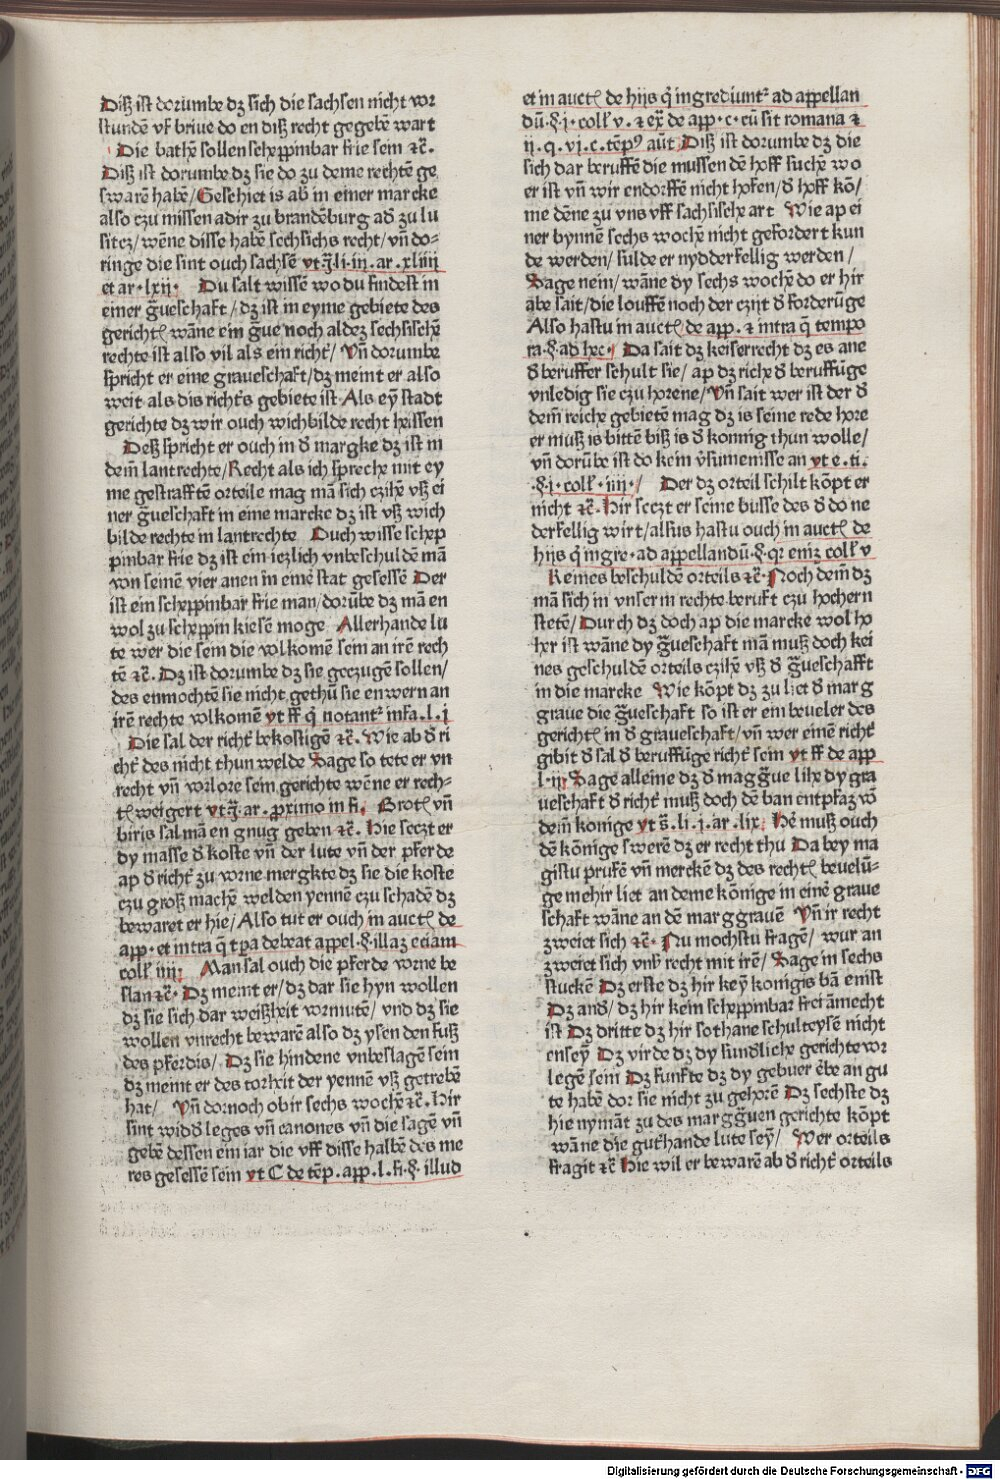 Diß ist dorumbe dʒ sich die sachsen nicht vor
stundē vf briue do en diß recht gegebē wart
Die bathē sollen scheppinbar frie sein ⁊c̄.
Diß ist dorumbe dʒ sie do zu deme rechtē ge
swarē habē/ Geschiet is ab in einer marcke
also czu missen adir zu brandēburg ad̄ zu lu
sitcz/ wēne disse habē sechsichs recht/ vn̄ do⸗
ringe die sint ouch sachsē vt.j̄.li.iij.ar.xliiij
et ar.lxij. Du salt wissē wo du findest in
einer ḡueschaft/ dʒ ist in eyme gebiete des
gerichtꝭ wāne ein ḡue noch aldeʒ sechsischē
rechte ist also vil als ein richt̄/ Vn̄ dorumbe
spricht er eine graueschaft/ dʒ meint er also
weit als dis richt̄s gebiete ist Als eȳ stadt
gerichte dʒ wir ouch wichbilde recht heissen
Deß spricht er ouch in d̄ margke dʒ ist in
dem̄ lantrechte/ Recht als ich spreche mit ey
me gestrafftē orteile mag mā sich czihē vß ei
ner ḡueschaft in eine marcke dʒ ist vß wich
bilde rechte in lantrechte Ouch wisse schep
pinbar frie dʒ ist ein iczlich vnbeschuldē mā
von seinē vier anen in emē stat gesessē Der
ist ein scheppinbar frie man/ dorūbe dʒ mā en
wol zu scheppin kiesē moge Allerhande lu
te wer die sein die volkomē sein an irē rech
tē ⁊c̄. Dʒ ist dorumbe dʒ sie geczugē sollen/
des enmochtē sie nicht gethū sie enwern an
irē rechte volkomē vt ff q̄ notant᷑ infa.l.j
Die sal der richt̄ bekostigē ⁊c̄. Wie ab d̄ ri
cht̄ des nicht thun welde Sage so tete er vn
recht vn̄ vorlore sein gerichte wēne er rech⸗
tꝭ weigert vt.j̄.ar.pximo in fi. Grotꝭ vn̄
biris sal mā en gnug geben ⁊c̄. Hie seczt er
dy masse d̄ koste vn̄ der lute vn̄ der pferde
ap d̄ richt̄ zu vorne mergkte dʒ sie die koste
czu groß machē welden yennē czu schadē dʒ
bewaret er hie/ Also tut er ouch in auctꝭ de
app.et intra q̄ tpa debeat appel.§.illaʒ eciam
coll̄ iiij. Man sal ouch die pferde vorne be
slan ⁊c̄. Dʒ meint er/ dʒ dar sie hyn wollen
dʒ sie sich dar weißheit vormutē/ vnd dʒ sie
wollen vnrecht bewarē also dʒ ysen den fuß
des pferdis/ Dʒ sie hindene vnbeslagē sein
dʒ meint er des torheit der yennē vß getrebē
hat/ Vn̄ dornoch obir sechs wochē ⁊c̄. Hir
sint wid̄ leges vn̄ canones vn̄ die sagē vn̄
gebē dessen ein iar die vff disse halbē des me
res gesessē sein vt C de tēp.app.l.fi.§.illud
et in auctꝭ de hijs q̄ ingrediunt᷑ ad appellan
dū.§.j.coll̄ v.⁊ ex̄ de app.c.cū sit romana ⁊
ij.q.vi.c.tēpꝰ aūt Diß ist dorumbe dʒ die
sich dar beruffē die mussen dē hoff suchē wo
er ist vn̄ wir endorffē nicht hofen/ d̄ hoff kō/
me dēne zu vns vff sachsische art Wie ap ei
ner bynnē sechs wochē nicht gefordert kun
de werden/ sulde er nydderfellig werden/
Sage nein/ wāne dy sechs wochē do er hir
abe sait/ die louffē noch der czijt d̄ forderūge
Also hastu in auctꝭ de app.⁊ intra q̄ tempo
ra.§.ad hec. Da sait dʒ keiserrecht dʒ es ane
d̄ beruffer schult sie/ ap dʒ riche d̄ beruffūge
vnledig sie czu horene/ Vn̄ sait wer ist der d̄
dem̄ reiche gebietē mag dʒ is seine rede hore
er muß is bittē biß is d̄ konnig thun wolle/
vn̄ dorūbe ist do kein v̄sumenisse an vt e.ti.
§.j.coll̄.iiij./ Der dʒ orteil schilt kōpt er
nicht ⁊c̄. Hir seczt er seine busse des d̄ do ne
derfellig wirt/ alsus hastu ouch in auctꝭ de
hijs q̄ ingre.ad appellandū.§.qr eniʒ coll̄ v
Keines beschuldē orteils ⁊c̄. Noch dem̄ dʒ
mā sich in vnserm rechte beruft czu hochern
stetē/ Durch dʒ doch ap die marcke wol ho
her ist wāne dy ḡueschaft mā muß doch kei
nes geschuldē orteils czihē vß d̄ ḡueschafft
in die marcke Wie kōpt dʒ zu liet d̄ marg
graue die ḡueschaft so ist er ein beueler des
gerichtꝭ in d̄ graueschaft/ vn̄ wer einē richt̄
gibit d̄ sal d̄ beruffūge richt̄ sein vt ff de app
l.iij Sage alleine dʒ d̄ magḡue lihe dy gra
ueschaft d̄ richt̄ muß doch dē ban entpfaʒ vō
dem̄ konige vt s̄.li.j.ar.lix. He muß ouch
dē kōnige swerē dʒ er recht thu Da bey ma
gistu prufē vn̄ merckē dʒ des rechtꝭ beuelū⸗
ge mehir liet an deme kōnige in einē graue
schaft wāne an dē marggrauē Vn̄ ir recht
zweiet sich ⁊c̄. Nu mochstu fragē/ wur an
zweiet sich vns̄ recht mit irē/ Sage in sechs
stuckē Dʒ erste dʒ hir keȳ konigis bā enist
Dʒ and̄/ dʒ hir kein scheppinbar frei āmecht
ist Dʒ dritte dʒ hir sothane schulteysē nicht
ensey Dʒ virde dʒ dy sundliche gerichte vor
legē sein Dʒ funfte dʒ dy gebuer ebe an gu
te habē dor sie nicht zu gehorē Dʒ sechste dʒ
hie nymāt zu des margḡuen gerichte kōpt
wāne die gut̄hande lute seȳ/ Wer orteils
fragit ⁊c̄ Hie wil er bewarē ab d̄ richt̄ orteils
Digitalisierung gefördert durch die Deutsche Forschungsgemeinschaft - DFG